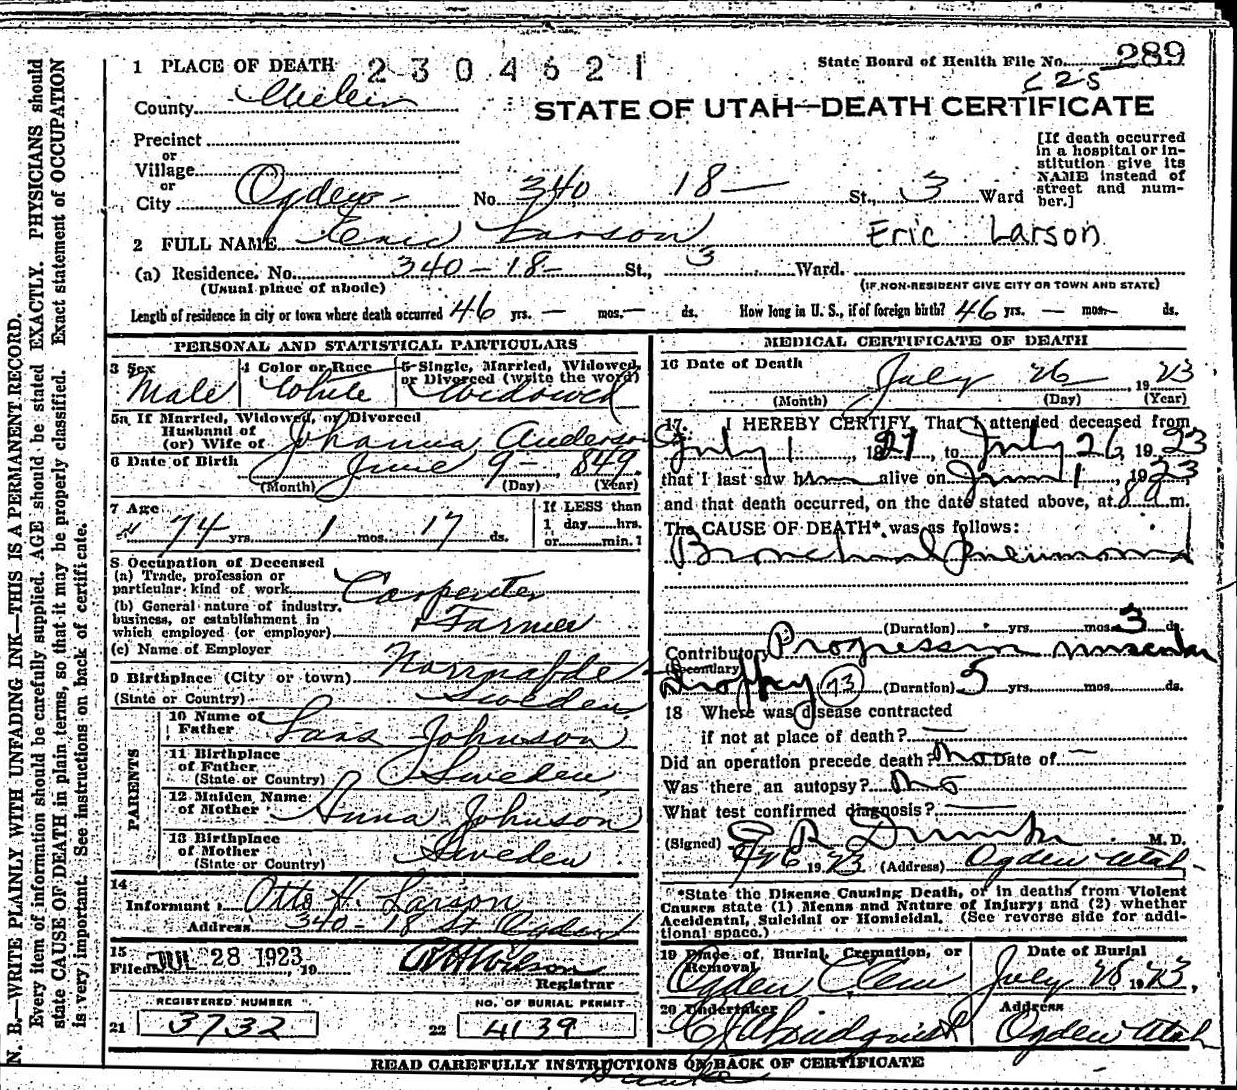 1 PLACE OF DEATH 2304621
State Board of Health File No. 289
C25
County
STATE OF UTAH—DEATH CERTIFICATE
Precinct
or
Village
or
City Ogden No. 340 18 — St., 3 Ward
[If death occurred
in a hospital or in-
stitution give its
NAME instead of
street and num-
ber.]
2 FULL NAME Larson Eric Larson
(a) Residence. No. 340-18- St., 3 Ward.
(Usual place of abode) (IF NON-RESIDENT GIVE CITY OR TOWN AND STATE)
Length of residence in city or town where death occurred 46 yrs. — mos. — ds. How long in U. S., if of foreign birth? 46 yrs. — mos. ds.
PERSONAL AND STATISTICAL PARTICULARS
3 Sex 4 Color or Race 5 Single, Married, Widowed,
or Divorced (write the word)
Male White Widowed
5a If Married, Widowed, or Divorced
Husband of
(or) Wife of Johanna Anderson
6 Date of Birth June 9- 1849
(Month) (Day) (Year)
7 Age If LESS than
74 yrs. 1 mos. 17 ds. 1 day......hrs.
or......min.
8 Occupation of Deceased
(a) Trade, profession or
particular kind of work Carpenter
(b) General nature of industry,
business, or establishment in
which employed (or employer) Farmer
(c) Name of Employer
9 Birthplace (City or town)
(State or Country) Sweden
PARENTS
10 Name of
Father Lars Johnson
11 Birthplace
of Father
(State or Country) Sweden
12 Maiden Name
of Mother Anna Johnson
13 Birthplace
of Mother
(State or Country) Sweden
14
Informant Otto H. Larson
Address 340-18 St Ogden
15
Filed JUL 28 1923, 19 Wilson
Registrar
REGISTERED NUMBER NO. OF BURIAL PERMIT
21 3732 22 4139
MEDICAL CERTIFICATE OF DEATH
16 Date of Death
July 26, 1923
(Month) (Day) (Year)
17. I HEREBY CERTIFY, That I attended deceased from
July 1, 1921, to July 26, 1923
that I last saw him alive on June 1, 1923
and that death occurred, on the date stated above, at 8 a m.
The CAUSE OF DEATH* was as follows:
Bronchial Pneumonia
(Duration) yrs. mos. 3 ds.
Contributory Progressive muscular
(Secondary)
73 (Duration) 5 yrs. mos. ds.
18 Where was disease contracted
if not at place of death? —
Did an operation precede death? No Date of —
Was there an autopsy? No
What test confirmed diagnosis? —
(Signed) M. D.
7/26 1923 (Address) Ogden Utah
*State the Disease Causing Death, or in deaths from Violent
Causes state (1) Means and Nature of Injury; and (2) whether
Accidental, Suicidal or Homicidal. (See reverse side for addi-
tional space.)
19 Place of Burial, Cremation, or Date of Burial
Removal
Ogden Cem July 28 1923,
20 Undertaker Address
Lindquist Ogden Utah
READ CAREFULLY INSTRUCTIONS ON BACK OF CERTIFICATE
N. B.—WRITE PLAINLY WITH UNFADING INK—THIS IS A PERMANENT RECORD.
Every item of information should be carefully supplied. AGE should be stated EXACTLY. PHYSICIANS should
state CAUSE OF DEATH in plain terms, so that it may be properly classified. Exact statement of OCCUPATION
is very important. See instructions on back of certificate.